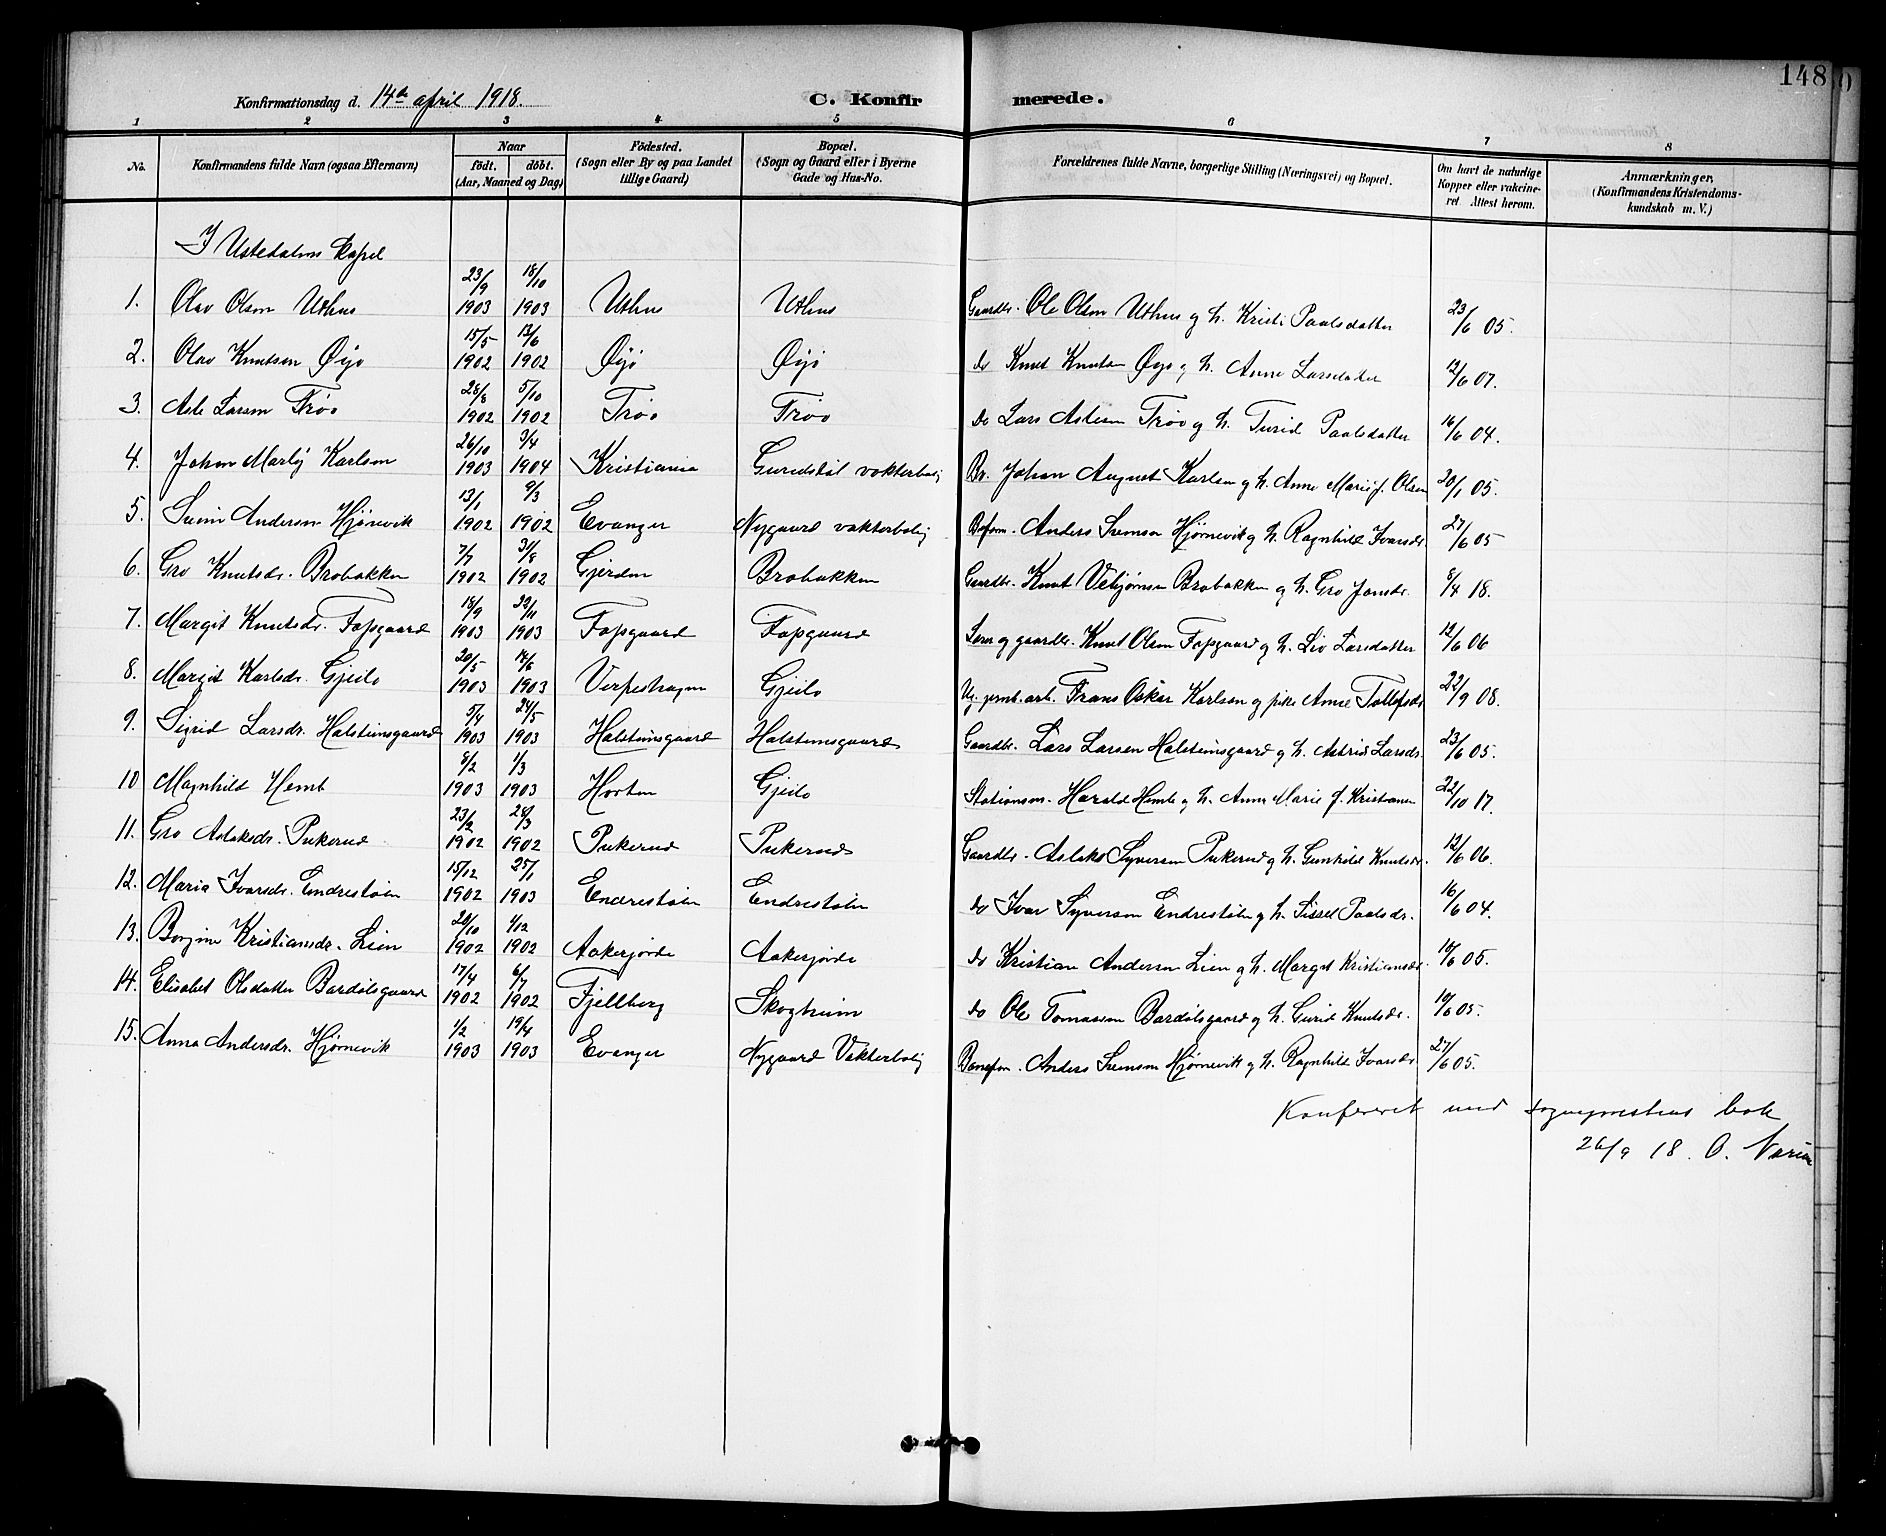 148
Konfirmationsdag d. 14de april 1918. C. Konfirmerede.
1 2 3 4 5 6 7 8
No. Konfirmandens fulde Navn (ogsaa Efternavn) Naar født. døbt. (Aar, Maaned og Dag) Fødested. (Sogn eller By og paa Landet tillige Gaard) Bopæl. (Sogn og Gaard eller i Byerne Gade og Hus-No. Forældrenes fulde Navne, borgerlige Stilling (Næringsvei) og Bopæl. Om havt de naturlige Kopper eller vakcineret. Attest herom. Anmærkninger, (Konfirmandens Kristendomskundskab m. V.)
I Ustedalens kapel
1. Olav Olsen Uthus 23/9 1903 18/10 1903 Uthus Uthus Gaardbr. Ole Olsen Uthus og h. Kristi Paalsdatter 23/6 05.
2. Olav Knutsen Øyjo 15/5 1902 13/6 1902 Øyjo Øyjo do Knut Knutsen Øyjo og h. Anne Larsdatter 12/6 07.
3. Asle Larsen Trøo 28/8 1902 5/10 1902 Trøo Trøo do Lars Aslesen Trøo og h. Turid Paalsdatter 16/6 04.
4. Johan Karlsen 26/10 1903 3/4 1904 Kristiania Guridstøl vokterbolig Br. Johan August Karlsen og h. Anne Marie f. Olsen 20/1 05.
5. Andersen Hjørnevik 13/1 1902 9/3 1902 Evanger Nygaard vakterbolig Anders Hjørnevik og h. Ragnhild Ivarsdr. 27/6 05
6. Gro Knutsdr. Brobakken 7/7 1902 31/8 1902 Gjerden Brobakken Gaardbr. Knut Vebjørnsen Brobakken og h. Gro Jonsdr. 8/4 18.
7. Margit Knutsdr. Fopsgaard 18/9 1903 22/11 1903 Fopsgaard Fopsgaard og gaardbr. Knut Olsen Fopsgaard og h. Liv Larsdatter 12/6 06
8. Margit Karlsdr. Gjeilo 20/5 1903 14/6 1903 Verpeshagen Gjeilo Ug. jernb. arb. Frans Oskar Karlsen og pike Anne Tollefsdr 22/9 08.
9. Sigrid Larsdr. Halsteinsgaard 5/4 1903 24/5 1903 Halsteinsgaard Halsteinsgaard Gaardbr. Lars Larsen Halsteinsgaard og h. Astrid Larsdr. 23/6 05.
10 Magnhild Hemb 8/2 1903 1/3 1903 Horten Gjeilo Stationsm. Harald Hemb og h. Anna Marie f. Kristiansen 22/10 17.
11. Gro Aslaksdr. Pukerud 23/2 1902 28/3 1902 Pukerud Pukerud Gaardbr. Aslak Syversen Pukerud og h. Gunhild Knutsdr. 12/6 06.
12. Maria Ivarsdr. Endrestølen 15/12 1902 25/1 1903 Endrestølen Endrestølen do Ivar Syversen Endrestølen og h. Sissel Paalsdr. 16/6 04.
13. Borgine Kristiansdr. Lien 20/10 1902 1/12 1902 Aakerjorde Aakerjorde do Kristian Andersen Lien og h. Margit Kristiansdr. 10/6 05.
14. Elisabet Olsdatter Bardølsgaard 17/4 1902 6/7 1902 Fjellberg Skogheim do Ole Tomassen Bardølsgaard og h. Gurid Knutsdr. 10/6 05.
15. Anna Andersdr. Hjørnevik 1/2 1903 19/4 1903 Evanger Nygaard Vakterbolig Banefm. Anders Hjørnevik og h. Ragnhild Ivarsdr. 27/6 05.
Konfereret med sogneprestens bok
26/9 18. O.